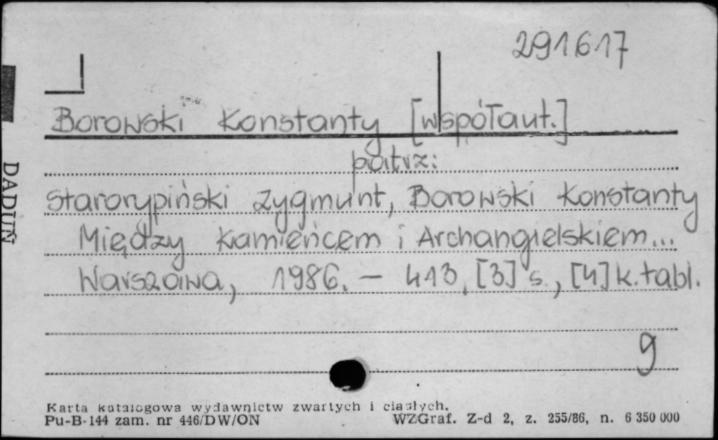 291617
Borowski Konstanty [współaut.]
patrz:
Starorypiński Zygmunt, Borowski Konstanty
Między Kamieńcem i Archangielskiem...
Warszawa, 1986. – 413, [3] s., [4] k. tabl.
9
DADUŃ
Karta katalogowa wydawnictw zwartych i ciągłych.
Pu-B-144 zam. nr 446/DW/ON WZGraf. Z-d 2, z. 255/86, n. 6 350 000